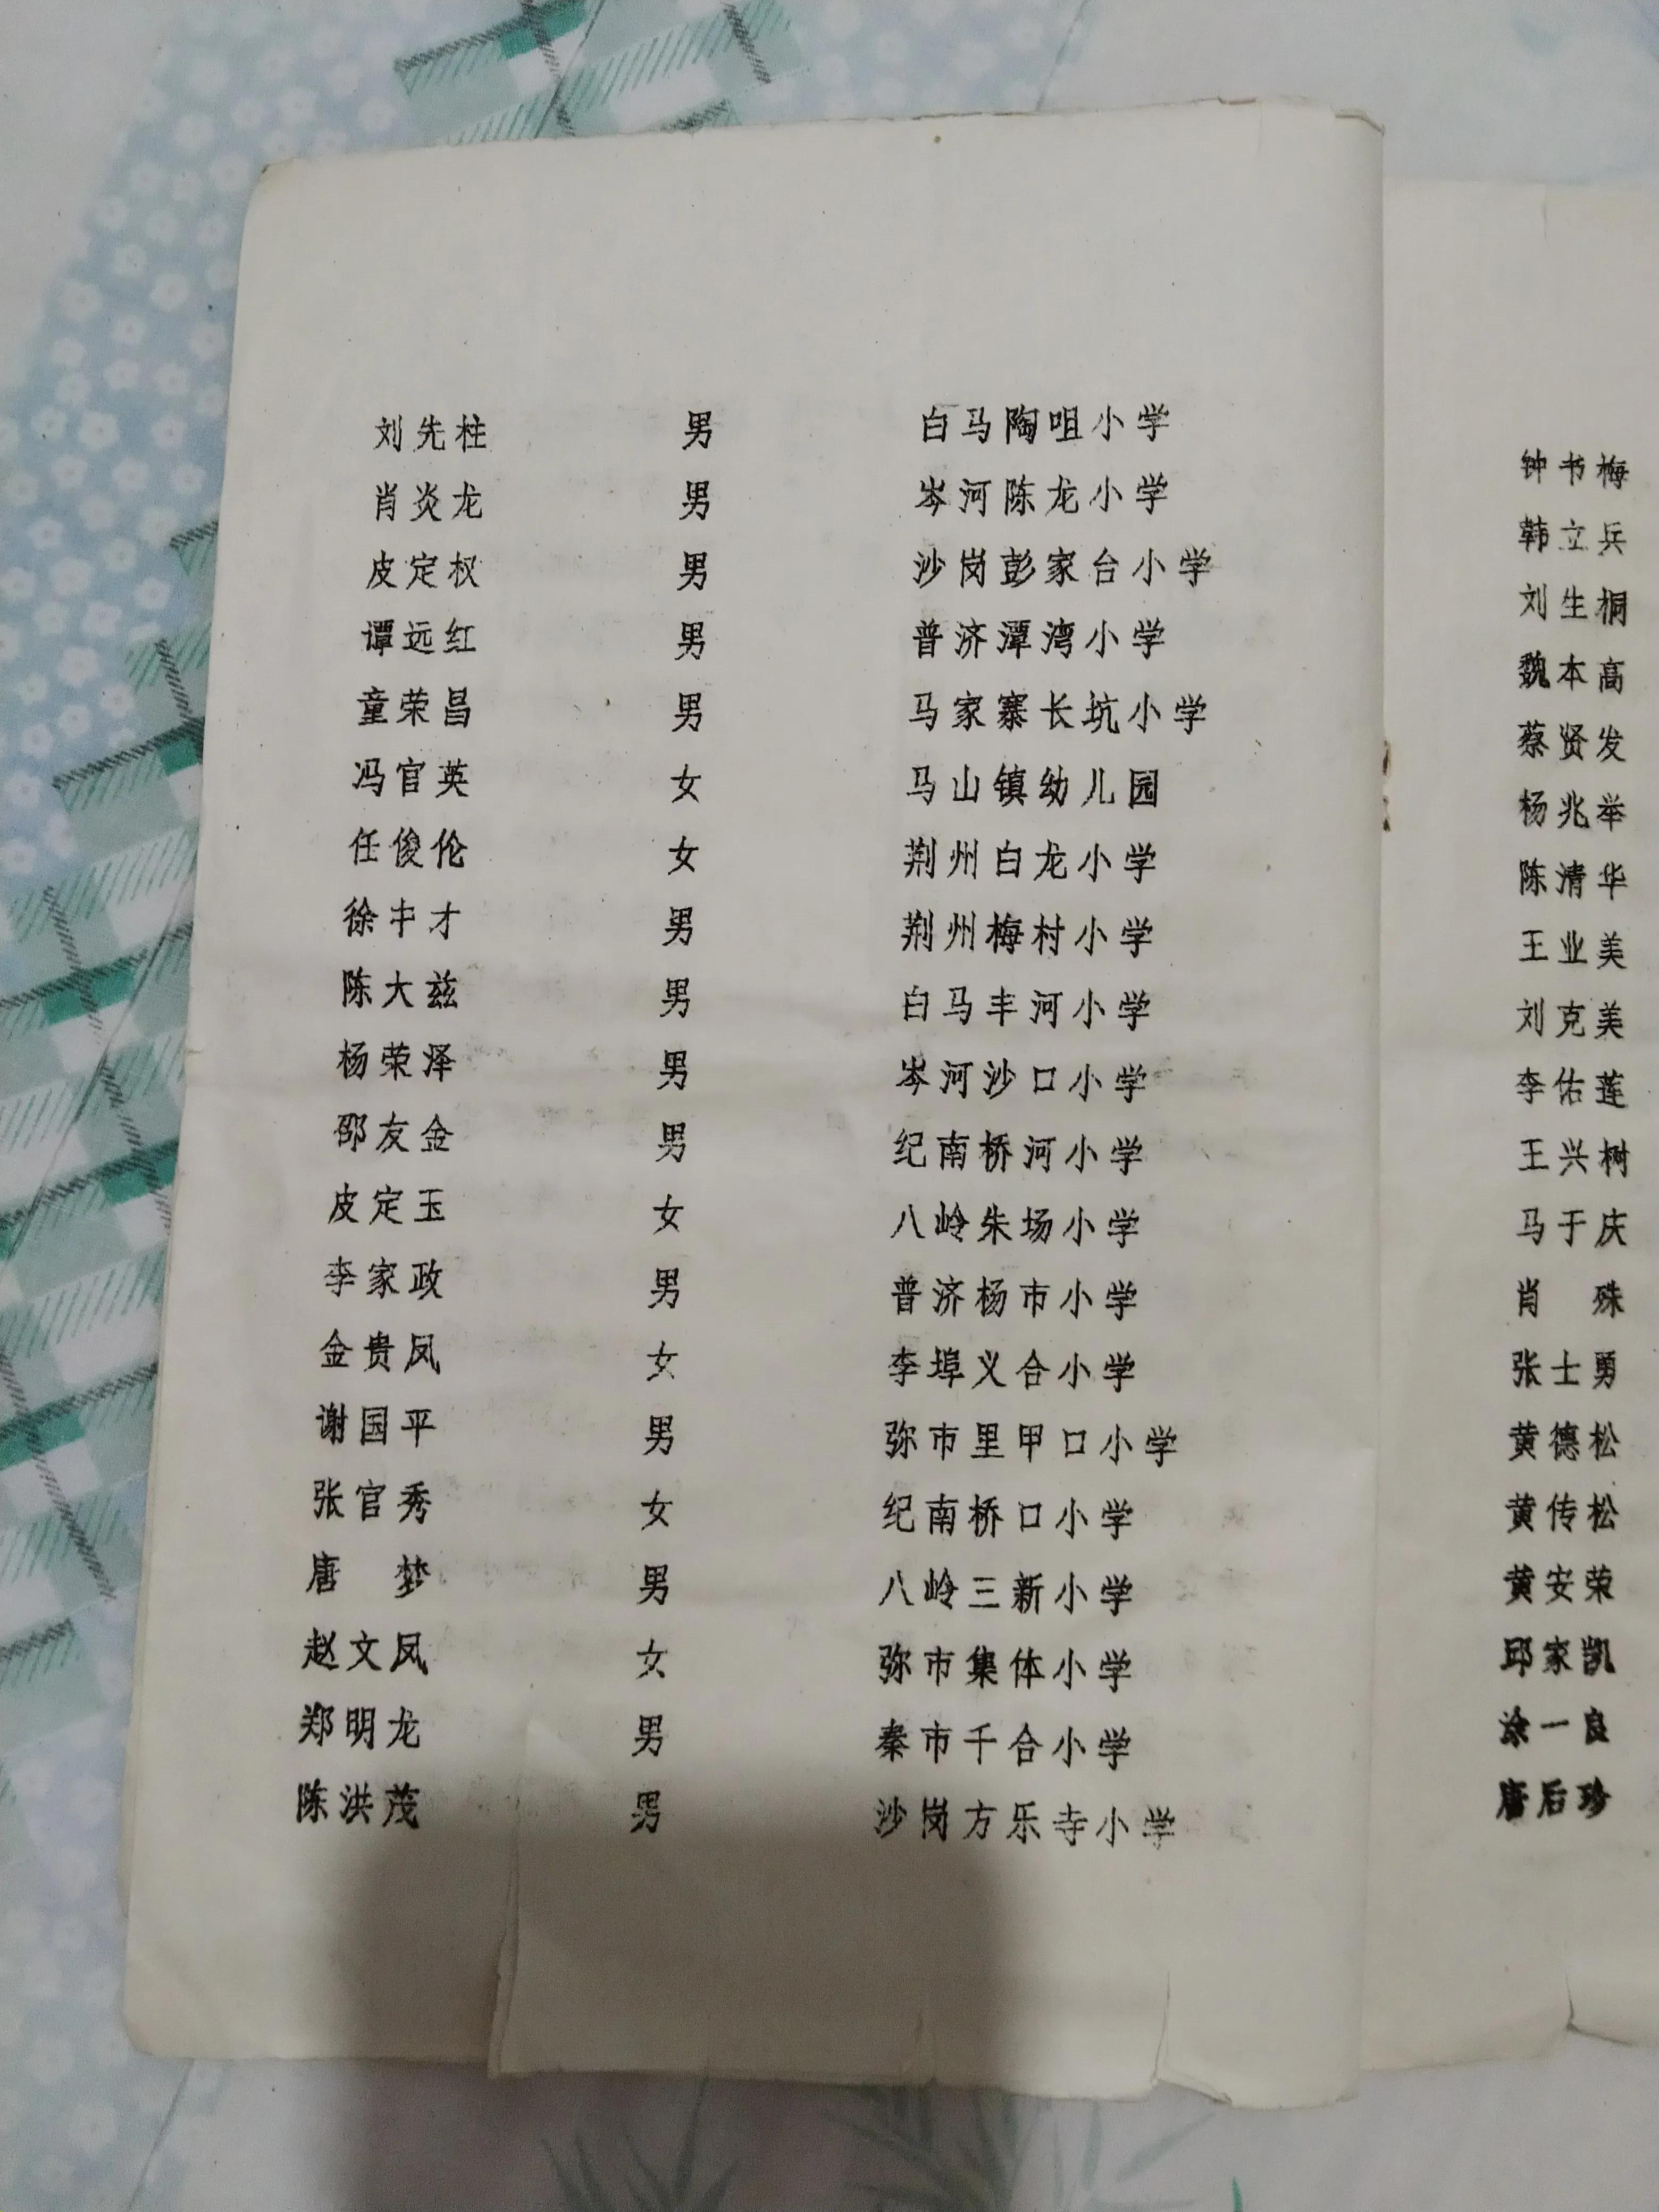 刘先柱 男 白马陶咀小学
肖炎龙 男 岑河陈龙小学
皮定权 男 沙岗彭家台小学
谭远红 男 普济潭湾小学
童荣昌 男 马家寨长坑小学
冯官英 女 马山镇幼儿园
任俊伦 女 荆州白龙小学
徐中才 男 荆州梅村小学
陈大兹 男 白马丰河小学
杨荣泽 男 岑河沙口小学
邵友金 男 纪南桥河小学
皮定玉 女 八岭朱场小学
李家政 男 普济杨市小学
金贵凤 女 李埠义合小学
谢国平 男 弥市里甲口小学
张官秀 女 纪南桥口小学
唐 梦 男 八岭三新小学
赵文凤 女 弥市集体小学
郑明龙 男 秦市千合小学
陈洪茂 男 沙岗方乐寺小学
钟书梅
韩立兵
刘生桐
魏本高
蔡贤发
杨兆举
陈清华
王业美
刘克美
李佑莲
王兴树
马于庆
肖 殊
张士勇
黄德松
黄传松
黄安荣
邱家凯
涂一良
唐后珍